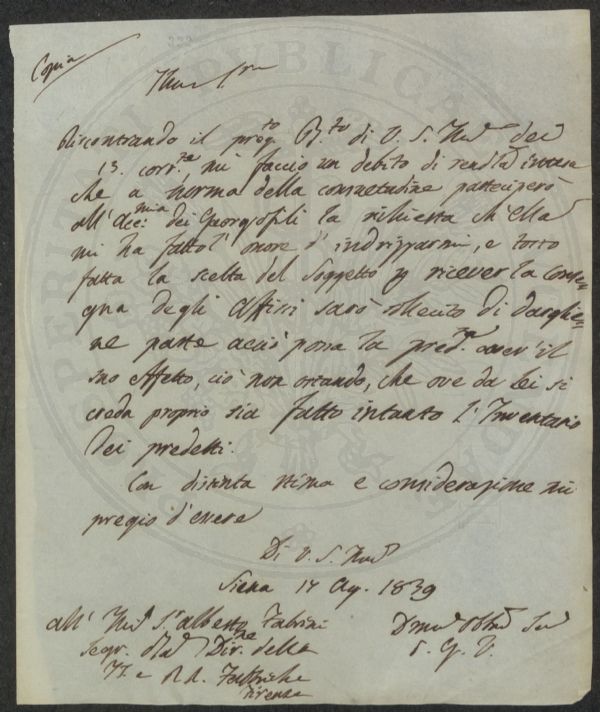 Copia
Illmo Sigre
Riscontrando il preg.to F.to di V. S. Illma del
13. corr.te mi faccio un debito di renderla intesa
che a norma della consuetudine parteciperò
all'Acc.mia dei Georgofili la richiesta ch'Ella
mi ha fatto l'onore d'indrizzarmi, e tosto
fatta la scelta del Soggetto p ricever la conse=
gna degli Affissi sarò sollecito di darglie=
ne parte acciò possa la pred.ta aver il
suo effetto, ciò non ostando, che ove da Lei si
creda proprio sia fatto intanto l'Inventario
dei predetti.
Con distinta stima e considerazione mi
pregio d'essere
Di V. S. Illma
Siena 17 Ag. 1839
all' Illmo Sr Alberto Fabrini
Segr. della Dir.ne delle
II. e RR. Fabbriche
Firenze
Devmo Obbmo Ser